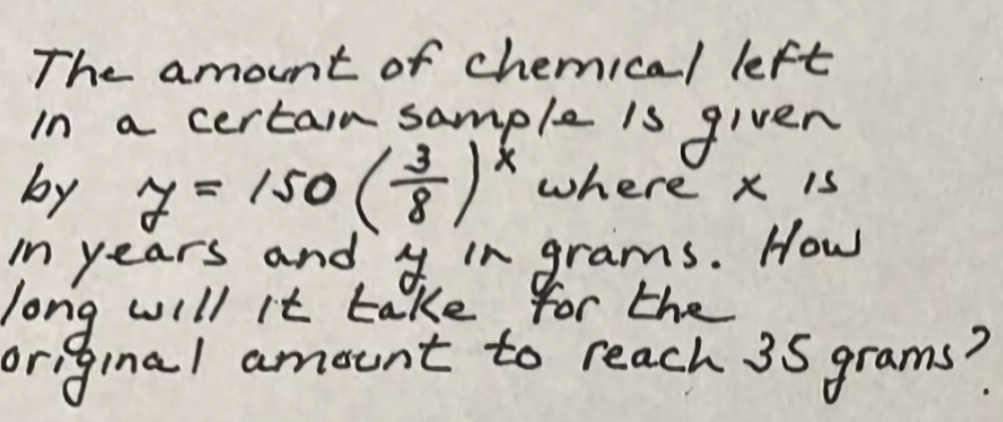 The amount of chemical left
in a certain sample is given
by y = 150 (3/8)^x where x is
in years and y in grams. How
long will it take for the
original amount to reach 35 grams?